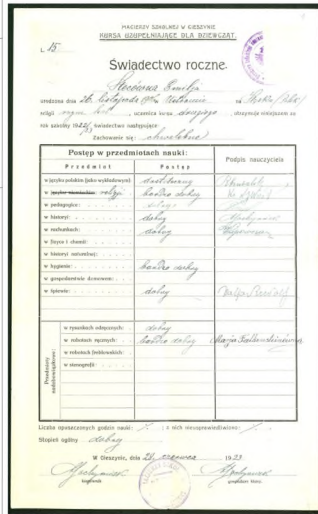 MACIERZY SZKOLNEJ w CIESZYNIE
KURSA UZUPEŁNIAJĄCE DLA DZIEWCZĄT.
L. 15
Świadectwo roczne.
Emilja
urodzona dnia 26. listopada w na Śląsku
religji rzym. kat., uczenica kursu drugiego, otrzymuje niniejszem za
rok szkolny 1922/23 świadectwo następujące:
Zachowanie się: chwalebne
Postęp w przedmiotach nauki:
Podpis nauczyciela
Przedmiot Postęp
w języku polskim (jako wykładowym): dostateczny
w języku niemieckim: religji bardzo dobry
w pedagogice:
w historyi: dobry
w rachunkach: dobry
w fizyce i chemii:
w historyi naturalnej:
w hygienie: bardzo dobry
w gospodarstwie domowem:
w śpiewie: dobry
Przedmioty nadobowiązkowe:
w rysunkach odręcznych: dobry
w robotach ręcznych: bardzo dobry
w robotach freblowskich:
w stenografii:
Liczba opuszczonych godzin nauki: ; z nich nieusprawiedliwione:
Stopień ogólny dobry
W Cieszynie, dnia 28. czerwca 1923
kierownik gospodarz klasy.